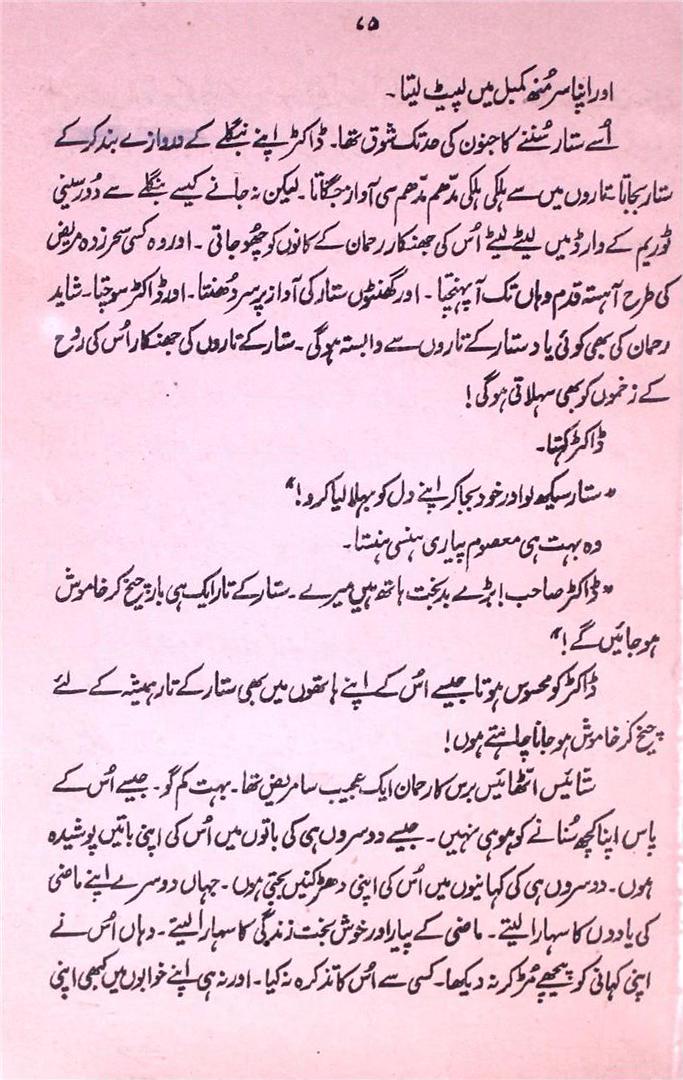 ۷۵
اور اپنا سر مُنھ کمبل میں لپیٹ لیتا۔
اُسے ستار سُننے کا جنون کی حد تک شوق تھا۔ ڈاکٹر اپنے بنگلے کے دروازے بند کر کے
ستار بجاتا تاروں میں سے ہلکی ہلکی مدّھم مدّھم سی آواز جگاتا۔ لیکن نہ جانے کیسے بنگلے سے دُور سینی
ٹوریم کے وارڈ میں لیٹے لیٹے اُس کی جھنکار رحمان کے کانوں کو چھُو جاتی۔ اور وہ کسی سحر زدہ مریض
کی طرح آہستہ قدم وہاں تک آ پہنچتا۔ اور گھنٹوں ستار کی آواز پر سر دُھنتا۔ اور ڈاکٹر سوچتا۔ شاید
رحمان کی بھی کوئی یاد ستار کے تاروں سے وابستہ ہوگی۔ ستار کے تاروں کی جھنکار اُس کی رُوح
کے زخموں کو بھی سہلاتی ہوگی!
ڈاکٹر کہتا۔
"ستار سیکھ لو اور خود بجا کر اپنے دل کو بہلا لیا کرو!"
وہ بہت ہی معصوم پیاری ہنسی ہنستا۔
"ڈاکٹر صاحب! بڑے بد بخت ہاتھ ہیں میرے۔ ستار کے تار ایک ہی بار چیخ کر خاموش
ہو جائیں گے!"
ڈاکٹر کو محسوس ہوتا جیسے اُس کے اپنے ہاتھوں میں بھی ستار کے تار ہمیشہ کے لئے
چیخ کر خاموش ہو جانا چاہتے ہوں!
ستائیس اٹھائیس برس کا رحمان ایک عجیب سا مریض تھا۔ بہت کم گو۔ جیسے اُس کے
پاس اپنا کچھ سُنانے کو ہو ہی نہیں۔ جیسے دوسروں ہی کی باتوں میں اُس کی اپنی باتیں پوشیدہ
ہوں۔ دوسروں ہی کی کہانیوں میں اُس کی اپنی دھڑکنیں بجتی ہوں۔ جہاں دوسرے اپنے ماضی
کی یادوں کا سہارا لیتے۔ ماضی کے پیار اور خوش بخت زندگی کا سہارا لیتے۔ وہاں اُس نے
اپنی کہانی کو پیچھے مُڑ کر نہ دیکھا۔ کسی سے اُس کا تذکرہ نہ کیا۔ اور نہ ہی اپنے خوابوں میں کبھی اپنی